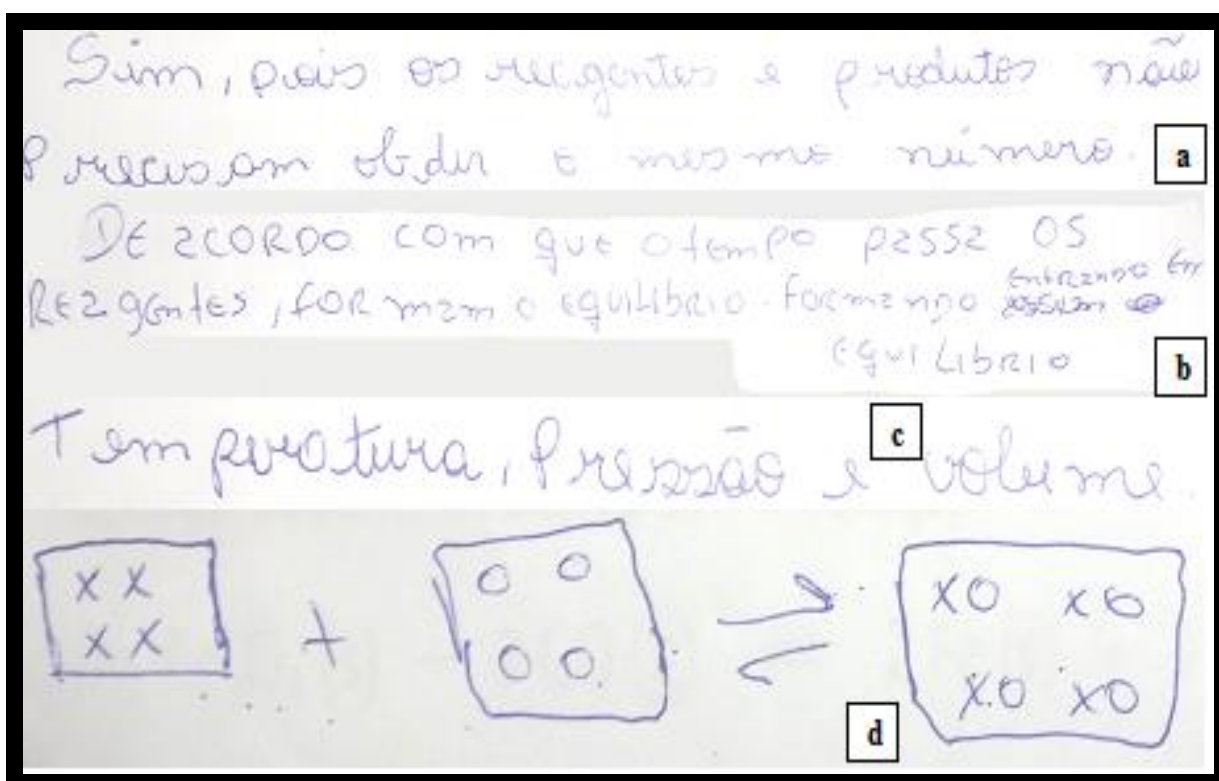 Sim, pois os reagentes e produtos não
Precisam obder o mesmo número. a
DE ACORDO COM que o tempo PASSA OS
REAgentes, FORMAM o EQUILIBRIO FORMANDO ENTRANDO Em
EQUILIBRIO b
Temperatura, Pressão e volume. c
X X
X X
+
O O
O O
⇌
XO XO
XO XO
d